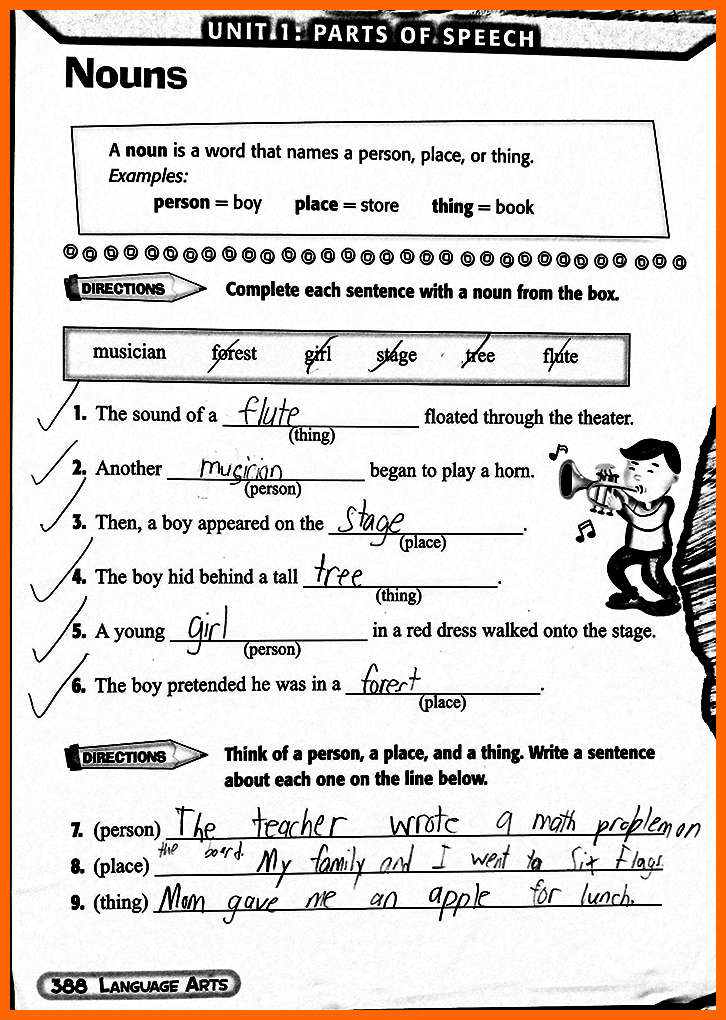 UNIT 1: PARTS OF SPEECH
Nouns
A noun is a word that names a person, place, or thing.
Examples:
person = boy place = store thing = book
DIRECTIONS Complete each sentence with a noun from the box.
musician forest girl stage tree flute
1. The sound of a flute floated through the theater.
(thing)
2. Another musician began to play a horn.
(person)
3. Then, a boy appeared on the stage.
(place)
4. The boy hid behind a tall tree.
(thing)
5. A young girl in a red dress walked onto the stage.
(person)
6. The boy pretended he was in a forest.
(place)
DIRECTIONS Think of a person, a place, and a thing. Write a sentence
about each one on the line below.
7. (person) The teacher wrote a math problem on
the board.
8. (place) My family and I went to Six Flags.
9. (thing) Mom gave me an apple for lunch.
388 LANGUAGE ARTS